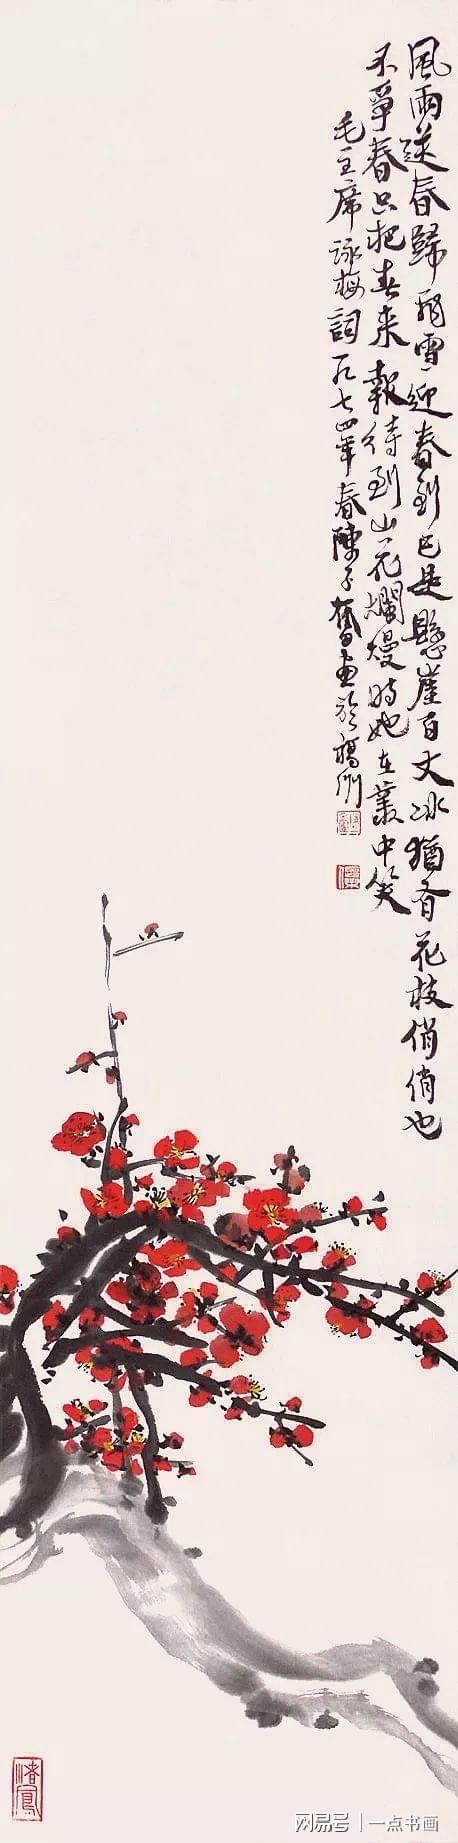 風雨送春歸飛雪迎春到已是懸崖百丈冰猶有花枝俏俏也
不爭春只把春来報待到山花爛熳時她在叢中笑
毛主席詠梅詞一九七四年春陳子奮畫於福州
网易号 | 一点书画